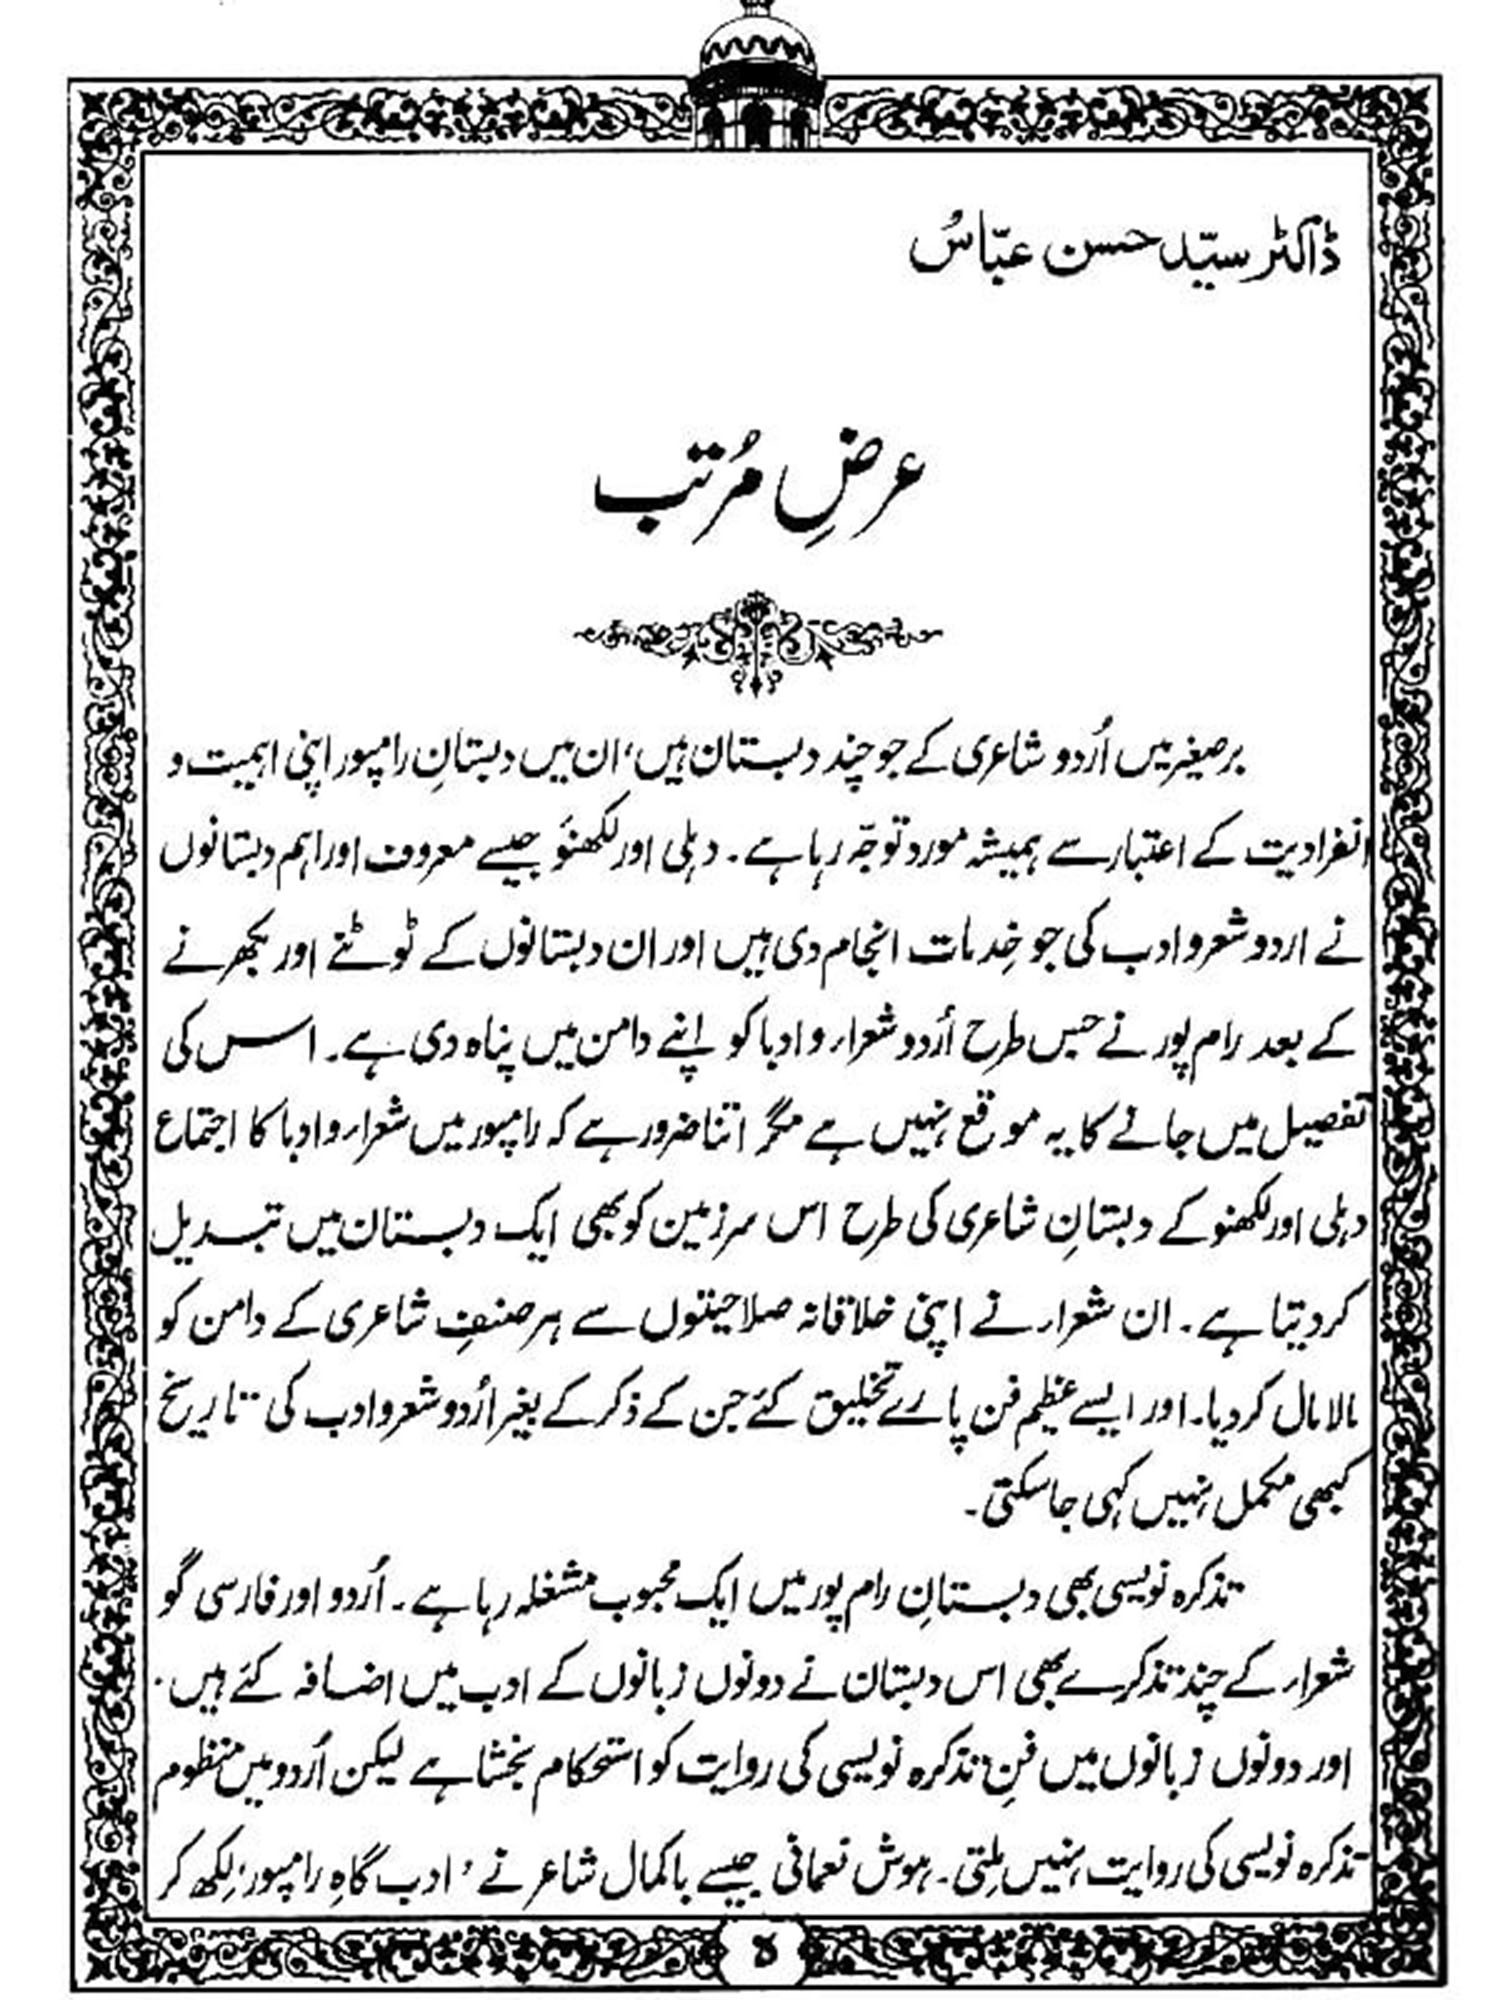 ڈاکٹر سیّد حسن عبّاس
عرضِ مُرتب
برصغیر میں اُردو شاعری کے جو چند دبستان ہیں، ان میں دبستانِ رامپور اپنی اہمیت و
انفرادیت کے اعتبار سے ہمیشہ مورد توجّہ رہا ہے۔ دہلی اور لکھنؤ جیسے معروف اور اہم دبستانوں
نے اردو شعر و ادب کی جو خِدمات انجام دی ہیں اور ان دبستانوں کے ٹوٹنے اور بکھرنے
کے بعد رام پور نے جس طرح اُردو شعراء و ادبا کو اپنے دامن میں پناہ دی ہے۔ اس کی
تفصیل میں جانے کا یہ موقع نہیں ہے مگر اتنا ضرور ہے کہ رامپور میں شعراء و ادبا کا اجتماع
دہلی اور لکھنو کے دبستانِ شاعری کی طرح اس سرزمین کو بھی ایک دبستان میں تبدیل
کر دیتا ہے۔ ان شعراء نے اپنی خلاقانہ صلاحیتوں سے ہر صنفِ شاعری کے دامن کو
مالا مال کر دیا۔ اور ایسے عظیم فن پارے تخلیق کئے جن کے ذکر کے بغیر اُردو شعر و ادب کی تاریخ
کبھی مکمل نہیں کہی جا سکتی۔
تذکرہ نویسی بھی دبستانِ رام پور میں ایک محبوب مشغلہ رہا ہے۔ اُردو اور فارسی گو
شعراء کے چند تذکرے بھی اس دبستان نے دونوں زبانوں کے ادب میں اضافہ کئے ہیں۔
اور دونوں زبانوں میں فنِ تذکرہ نویسی کی روایت کو استحکام بخشا ہے لیکن اُردو میں منظوم
تذکرہ نویسی کی روایت نہیں مِلتی۔ ہوش نعمانی جیسے باکمال شاعر نے ’ادب گاہِ رامپور‘ لِکھ کر
۵